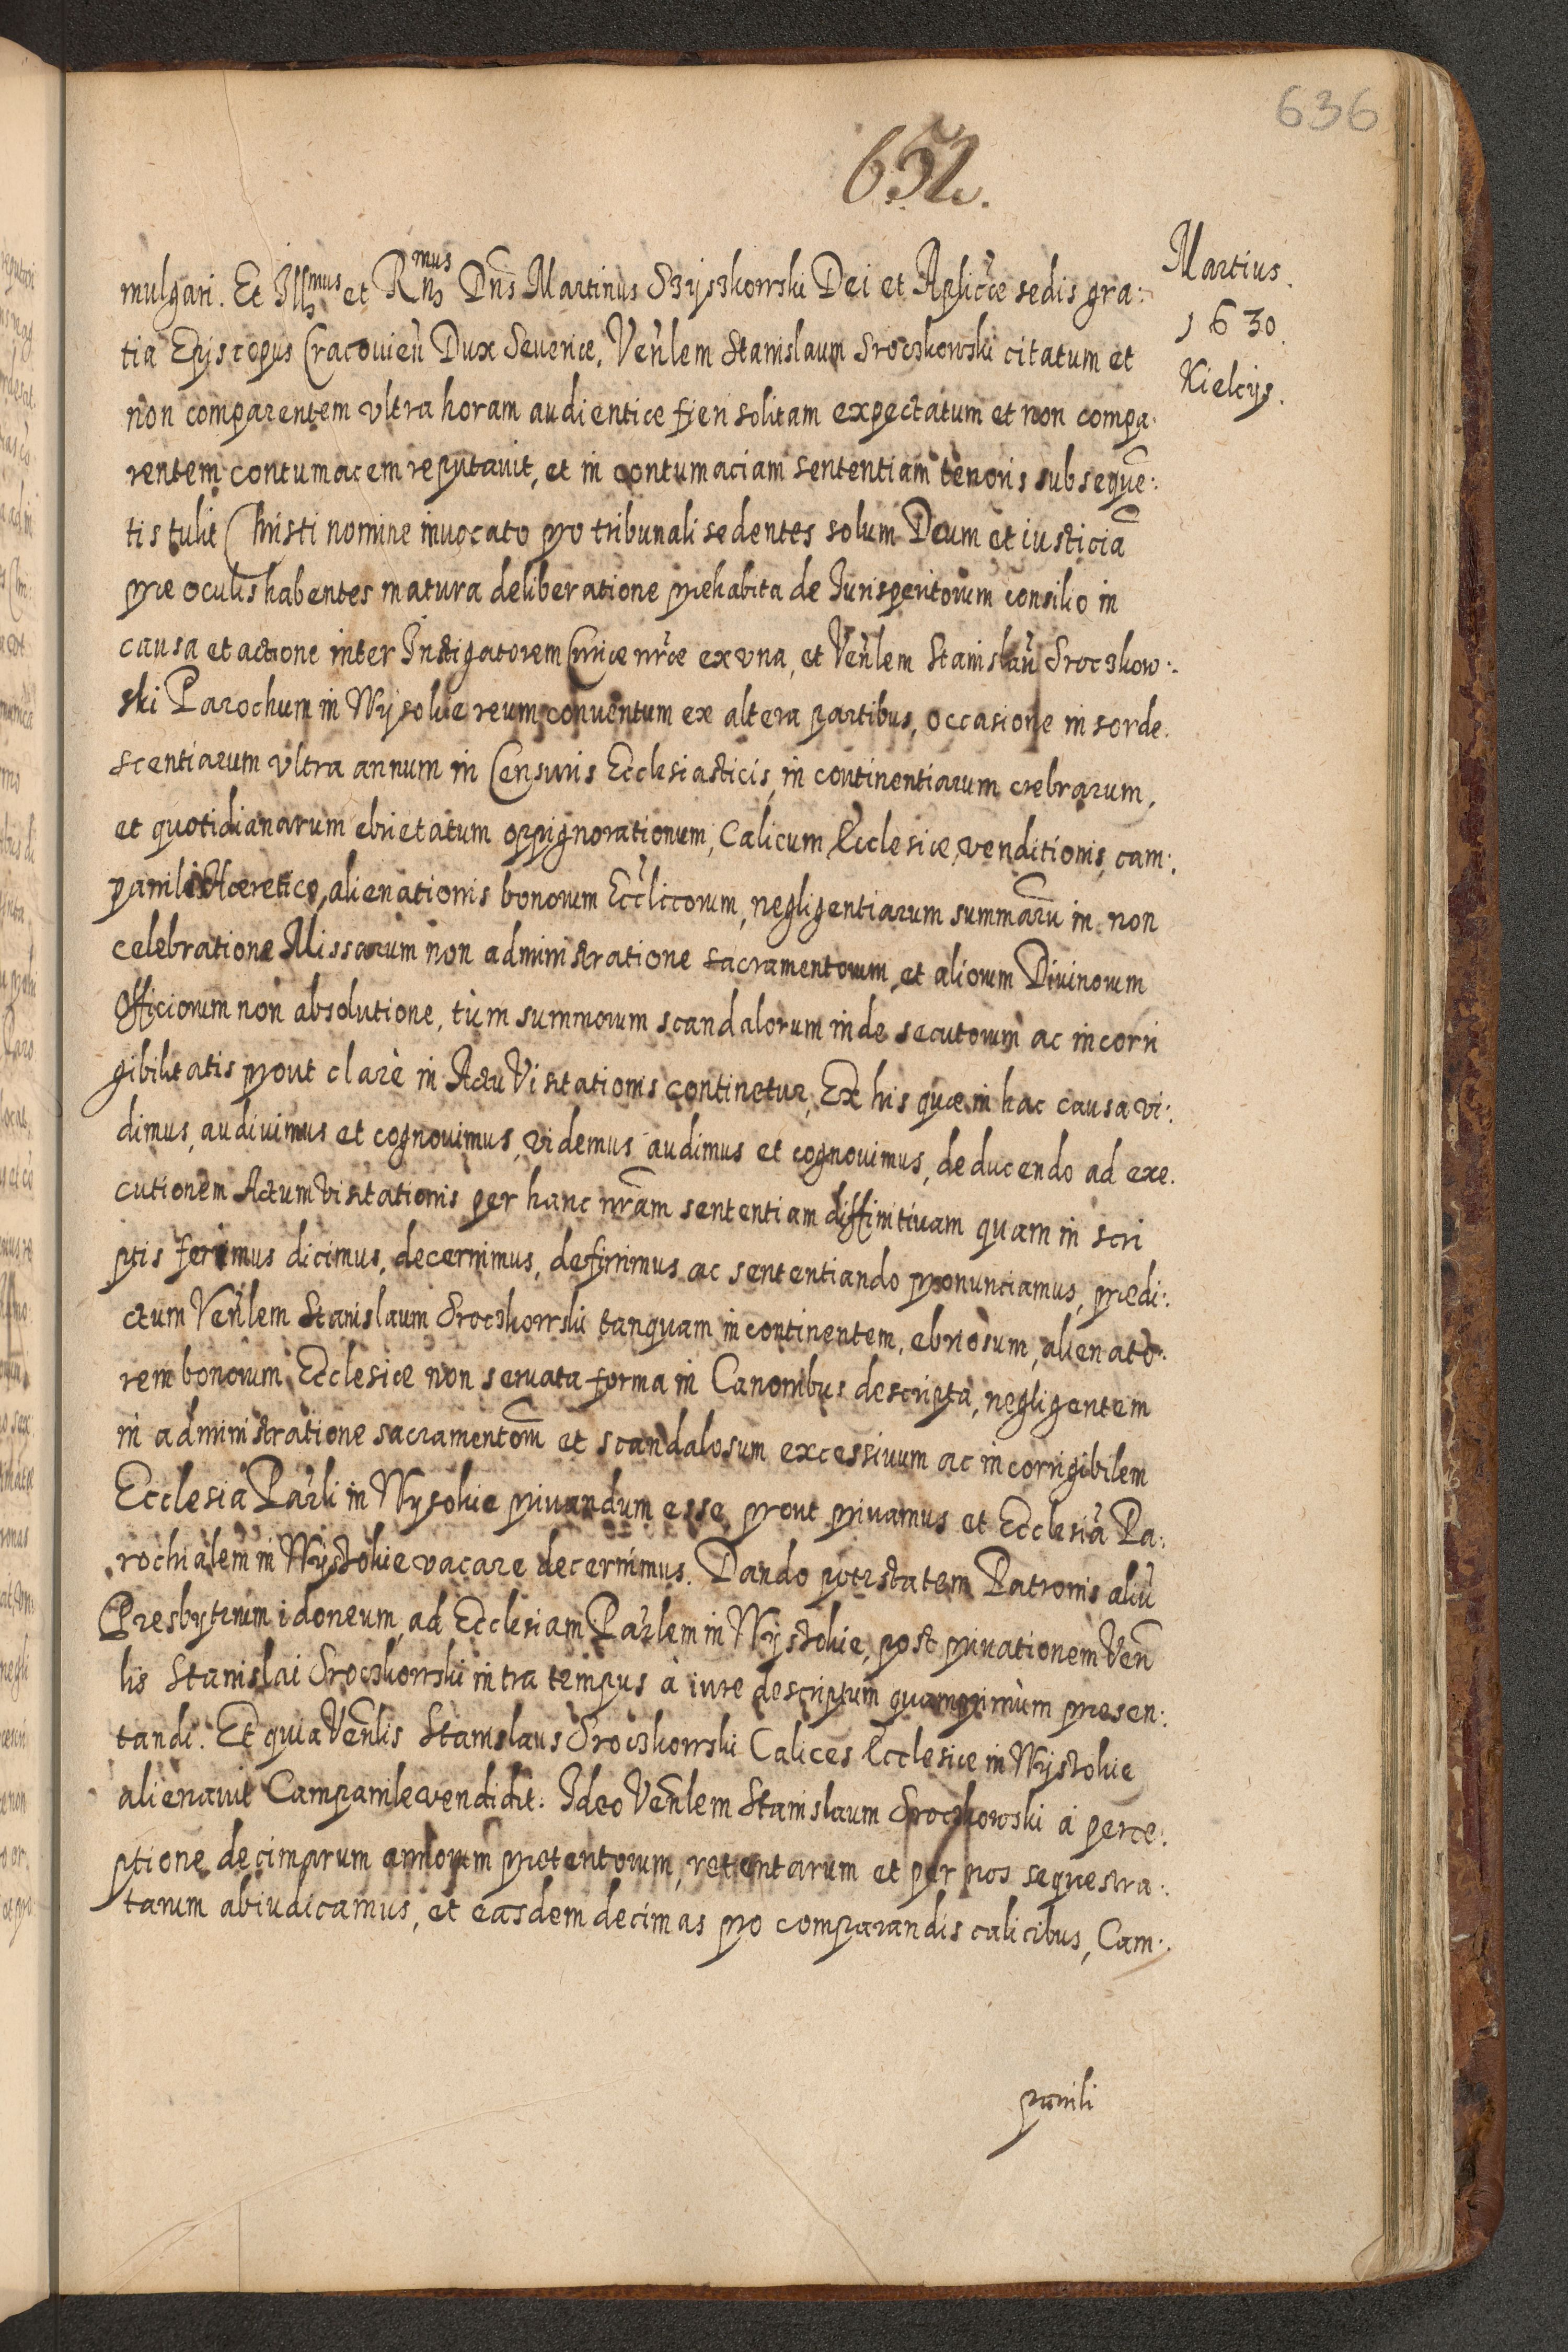 636
652.
Martius.
1630.
Kielcijs.
mulgari. Et Illmus et Rmus Dns Martinus Szyszkowski Dei et Aplicæ sedis gra:
tia Episcopus Cracouien Dux Seueriæ, Venlem Stanislaum Sroczkowski citatum et
non comparentem vltra horam audientiæ fieri solitam expectatum et non compa.
rentem contumacem reputauit, et in contumaciam sententiam tenoris subseque:
tis tulit Christi nomine inuocato pro tribunali sedentes solum Deum et iusticia
præ oculis habentes matura deliberatione præhabita de Iurisperitorum consilio in
causa et actione inter Instigatorem Curiæ nræ ex vna, et Venlem Stanislau Sroczkow:
ski Parochum in Wysokie reum conuentum ex altera partibus, occasione in sorde.
scentiarum vltra annum in Censuris Ecclesiasticis, in continentiarum crebrarum,
et quotidianarum ebrietatum oppignorationum, Calicum Ecclesiæ, venditionis, cam:
panilis Hæretico, alienationis bonorum Ecclicorum, negligentiarum summaru in non
celebratione Missarum non administratione sacramentorum, et aliorum Diuinorum
Officiorum non absolutione, tum summorum scandalorum inde secutorum ac incorri
gibilitatis prout clarè in Actu Visitationis continetur, Ex his quæ in hac causa vi:
dimus, audiuimus et cognouimus, videmus audimus et cognouimus, deducendo ad exe.
cutionem Actum visitationis per hanc nram sententiam diffinitiuam quam in scri
ptis ferimus dicimus, decernimus, definimus ac sententiando pronunciamus, prædi:
ctum Venlem Stanislaum Sroczkowski tanquam incontinentem, ebriosum, alienato:
rem bonorum Ecclesiæ non seruata forma in Canonibus descripta, negligentem
in administratione sacramentom et scandalosum excessiuum ac incorrigibilem
Ecclesia Parli in Wysokie priuandum esse, prout priuamus et Ecclesia Pa:
rochialem in Wystokie vacare decernimus. Dando potestatem Patronis aliu
Presbyterum idoneum, ad Ecclesiam Parlem in Wystokie, post priuationem Ven
lis Stanislai Sroczkowski intra tempus à iure descriptum quamprimùm presen:
tandi. Et quia Venlis Stanislaus Sroczkowski Calices Ecclesiæ in Wystokie
alienauit Campanile vendidit. Ideo Venlem Stanislaum Sroczkowski à perce:
ptione decimarum annorum prætentorum, retentarum et per nos sequestra:
tarum abiudicamus, et easdem decimas pro comparandis calicibus, Cam:
panili